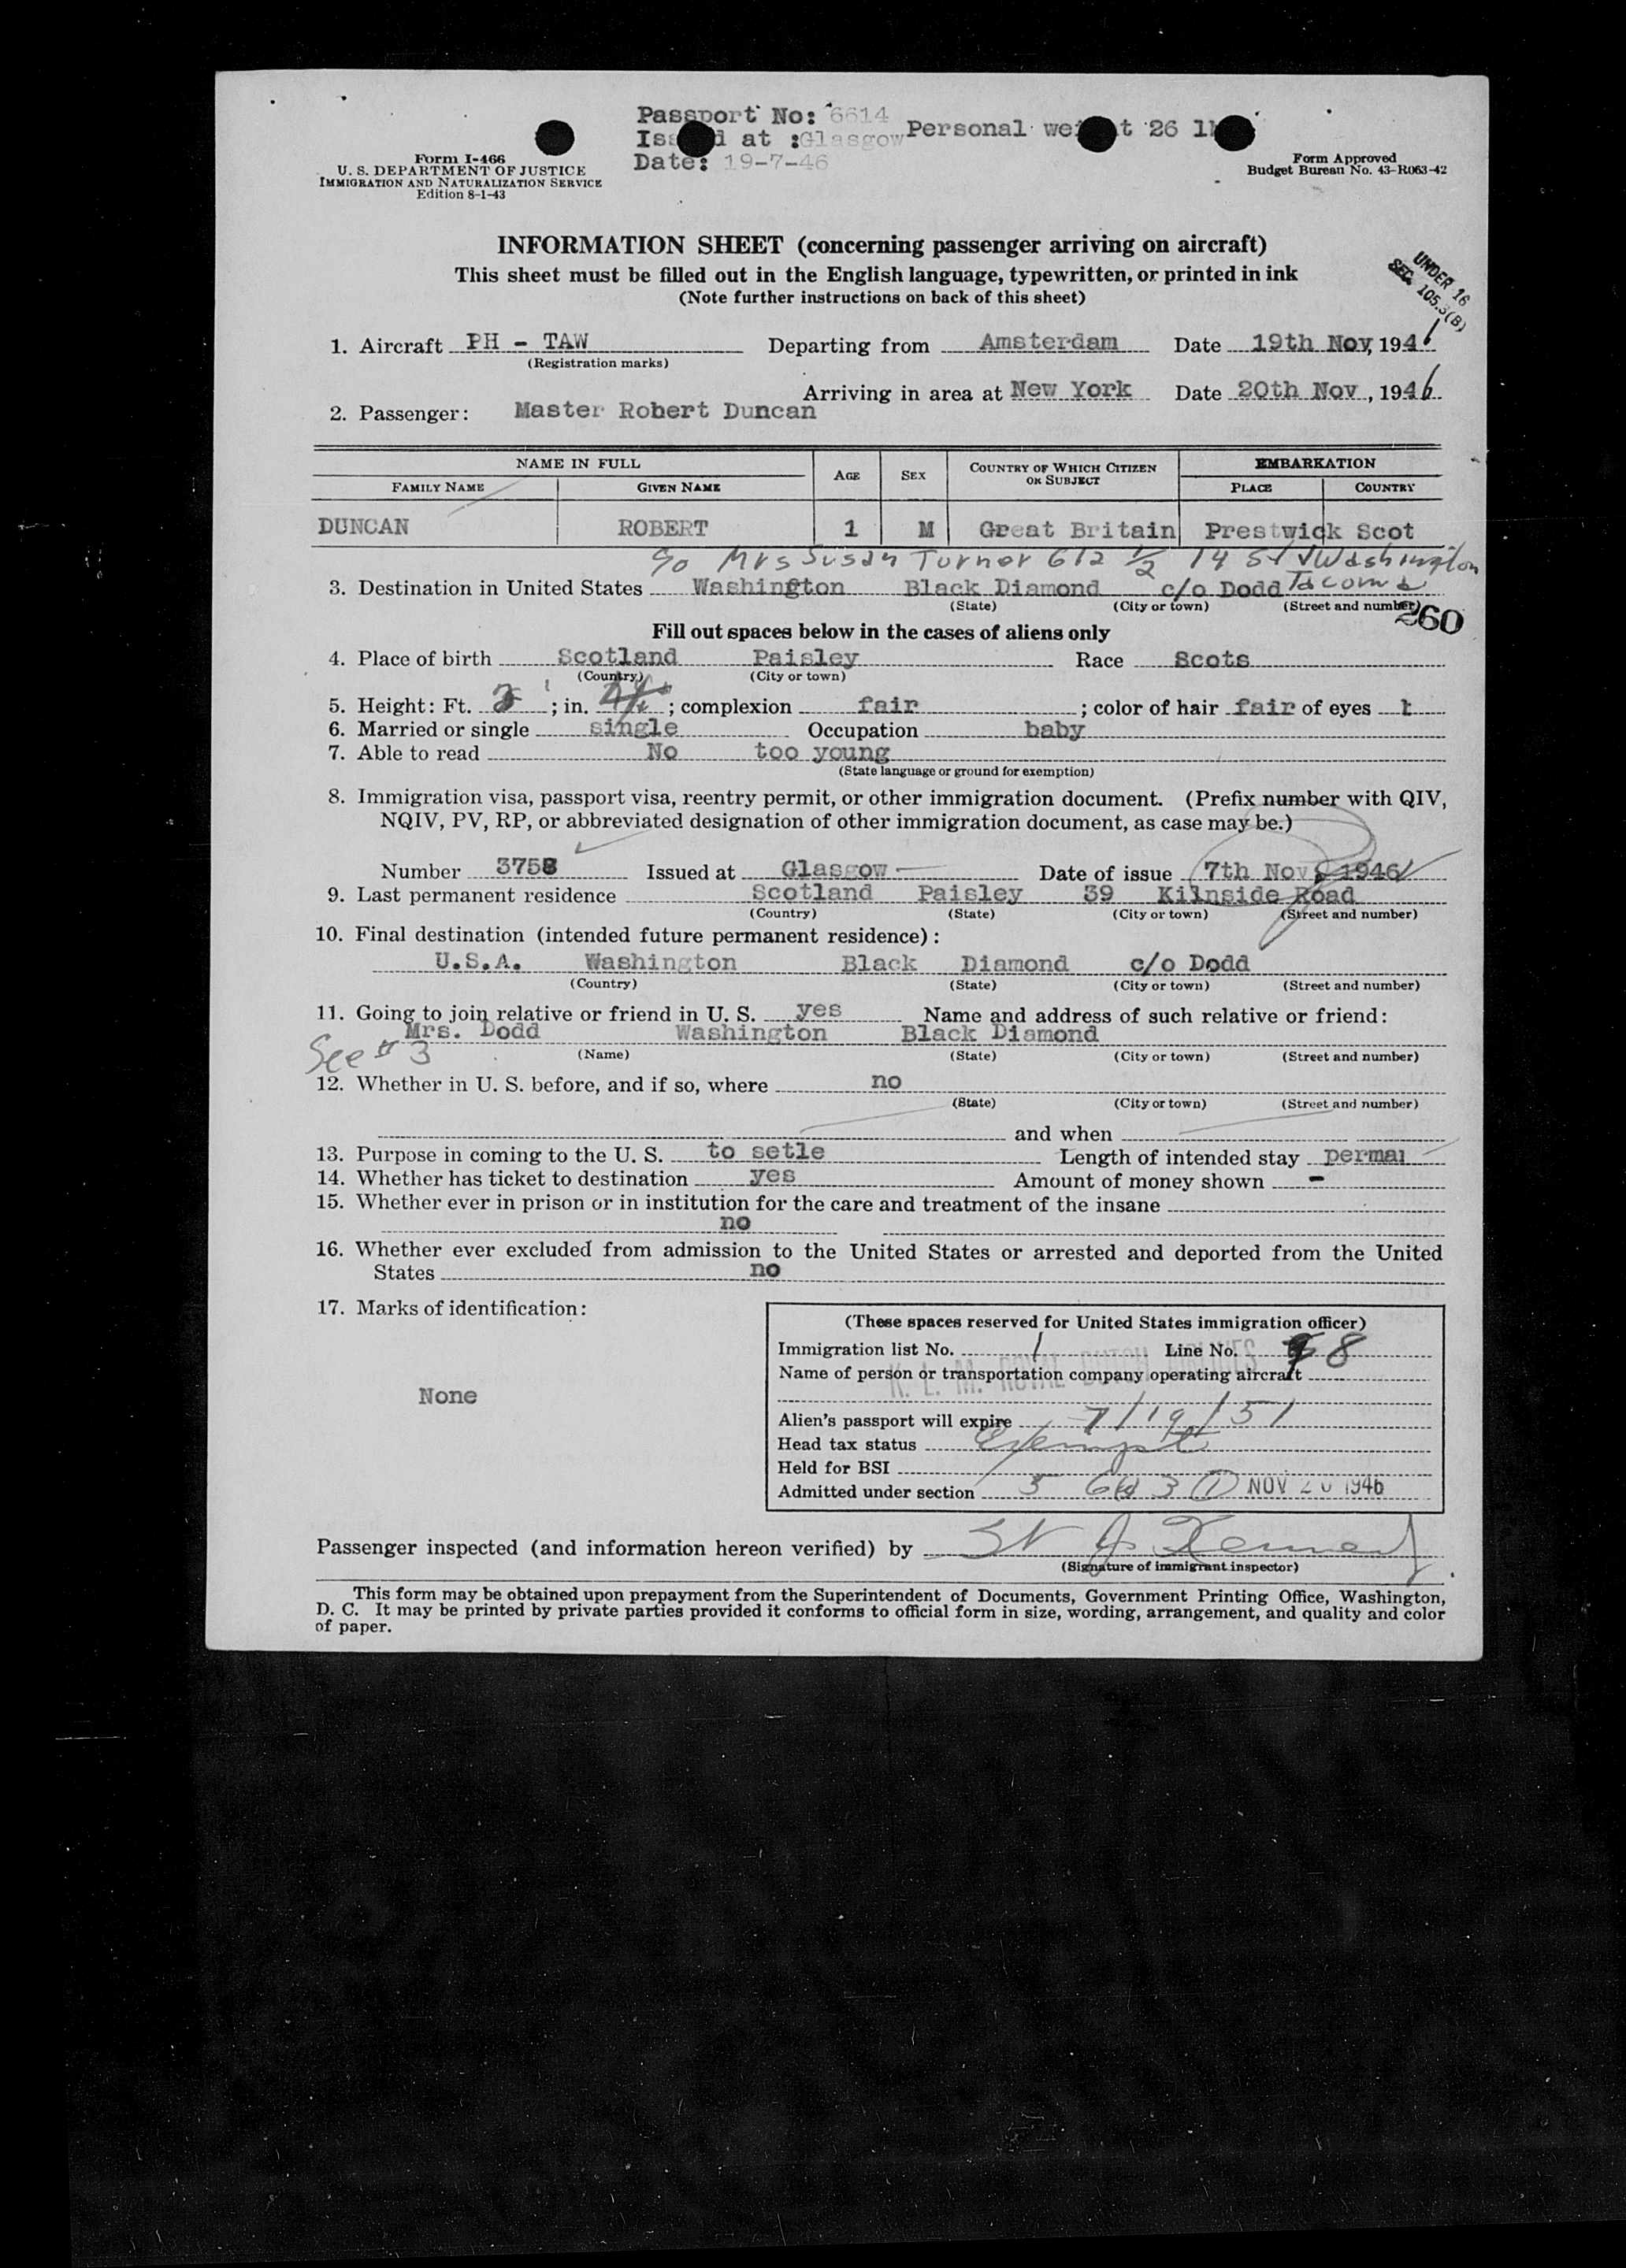 Passport No: 6614
at :Glasgow Personal 26
Date: 19-7-46
Form I-466
U. S. DEPARTMENT OF JUSTICE
IMMIGRATION AND NATURALIZATION SERVICE
Edition 8-1-43
Form Approved
Budget Bureau No. 43-R063-42
INFORMATION SHEET (concerning passenger arriving on aircraft)
This sheet must be filled out in the English language, typewritten, or printed in ink
(Note further instructions on back of this sheet)
UNDER 16
SEC. 105.3(B)
1. Aircraft PH - TAW Departing from Amsterdam Date 19th Nov, 1946
(Registration marks)
Arriving in area at New York Date 20th Nov, 1946
2. Passenger: Master Robert Duncan
NAME IN FULL AGE SEX COUNTRY OF WHICH CITIZEN OR SUBJECT EMBARKATION
FAMILY NAME GIVEN NAME PLACE COUNTRY
DUNCAN ROBERT 1 M Great Britain Prestwick Scot
c/o Mrs Susan Turner 612 1/2 14 St Washington
3. Destination in United States Washington Black Diamond c/o Dodd Tacoma
(State) (City or town) (Street and number)
260
Fill out spaces below in the cases of aliens only
4. Place of birth Scotland Paisley Race Scots
(Country) (City or town)
5. Height: Ft. ; in. ; complexion fair ; color of hair fair of eyes
6. Married or single single Occupation baby
7. Able to read No too young
(State language or ground for exemption)
8. Immigration visa, passport visa, reentry permit, or other immigration document. (Prefix number with QIV,
NQIV, PV, RP, or abbreviated designation of other immigration document, as case may be.)
Number 3758 Issued at Glasgow Date of issue 7th Nov, 1946
9. Last permanent residence Scotland Paisley 39 Kilnside Road
(Country) (State) (City or town) (Street and number)
10. Final destination (intended future permanent residence):
U.S.A. Washington Black Diamond c/o Dodd
(Country) (State) (City or town) (Street and number)
11. Going to join relative or friend in U. S. yes Name and address of such relative or friend:
Mrs. Dodd Washington Black Diamond
See # 3
(Name) (State) (City or town) (Street and number)
12. Whether in U. S. before, and if so, where no
(State) (City or town) (Street and number)
and when
13. Purpose in coming to the U. S. to setle Length of intended stay perma
14. Whether has ticket to destination yes Amount of money shown -
15. Whether ever in prison or in institution for the care and treatment of the insane
no
16. Whether ever excluded from admission to the United States or arrested and deported from the United
States no
17. Marks of identification:
None
(These spaces reserved for United States immigration officer)
Immigration list No. 1 Line No. 8
K. L. M. ROYAL DUTCH AIRLINES
Name of person or transportation company operating aircraft
Alien's passport will expire 7/19/51
Head tax status Exempt
Held for BSI
Admitted under section 5 3 (1) NOV 20 1946
Passenger inspected (and information hereon verified) by Kennedy
(Signature of immigrant inspector)
This form may be obtained upon prepayment from the Superintendent of Documents, Government Printing Office, Washington,
D. C. It may be printed by private parties provided it conforms to official form in size, wording, arrangement, and quality and color
of paper.